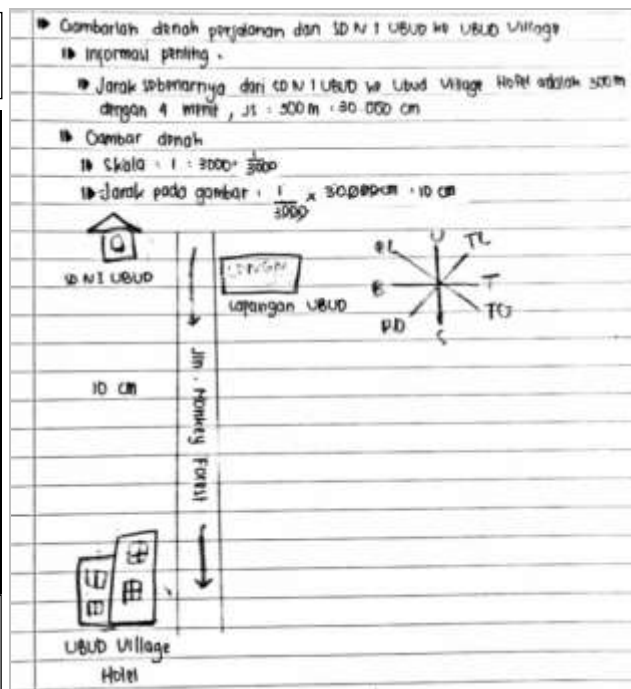 Gambarlah denah perjalanan dari SD N 1 UBUD ke UBUD Village
Informasi penting .
Jarak sebenarnya dari SD N 1 UBUD ke Ubud Village Hotel adalah 300m
dengan 4 menit , JS : 300 m : 30 000 cm
Gambar denah
Skala : 1 : 3000 : 1/3000
Jarak pada gambar : 1/3000 x 30.000 cm : 10 cm
SD N 1 UBUD
Lapangan UBUD
U
TL
BL
B
T
TG
BD
S
10 cm
Jln . Monkey Forest
UBUD Village
Hotel